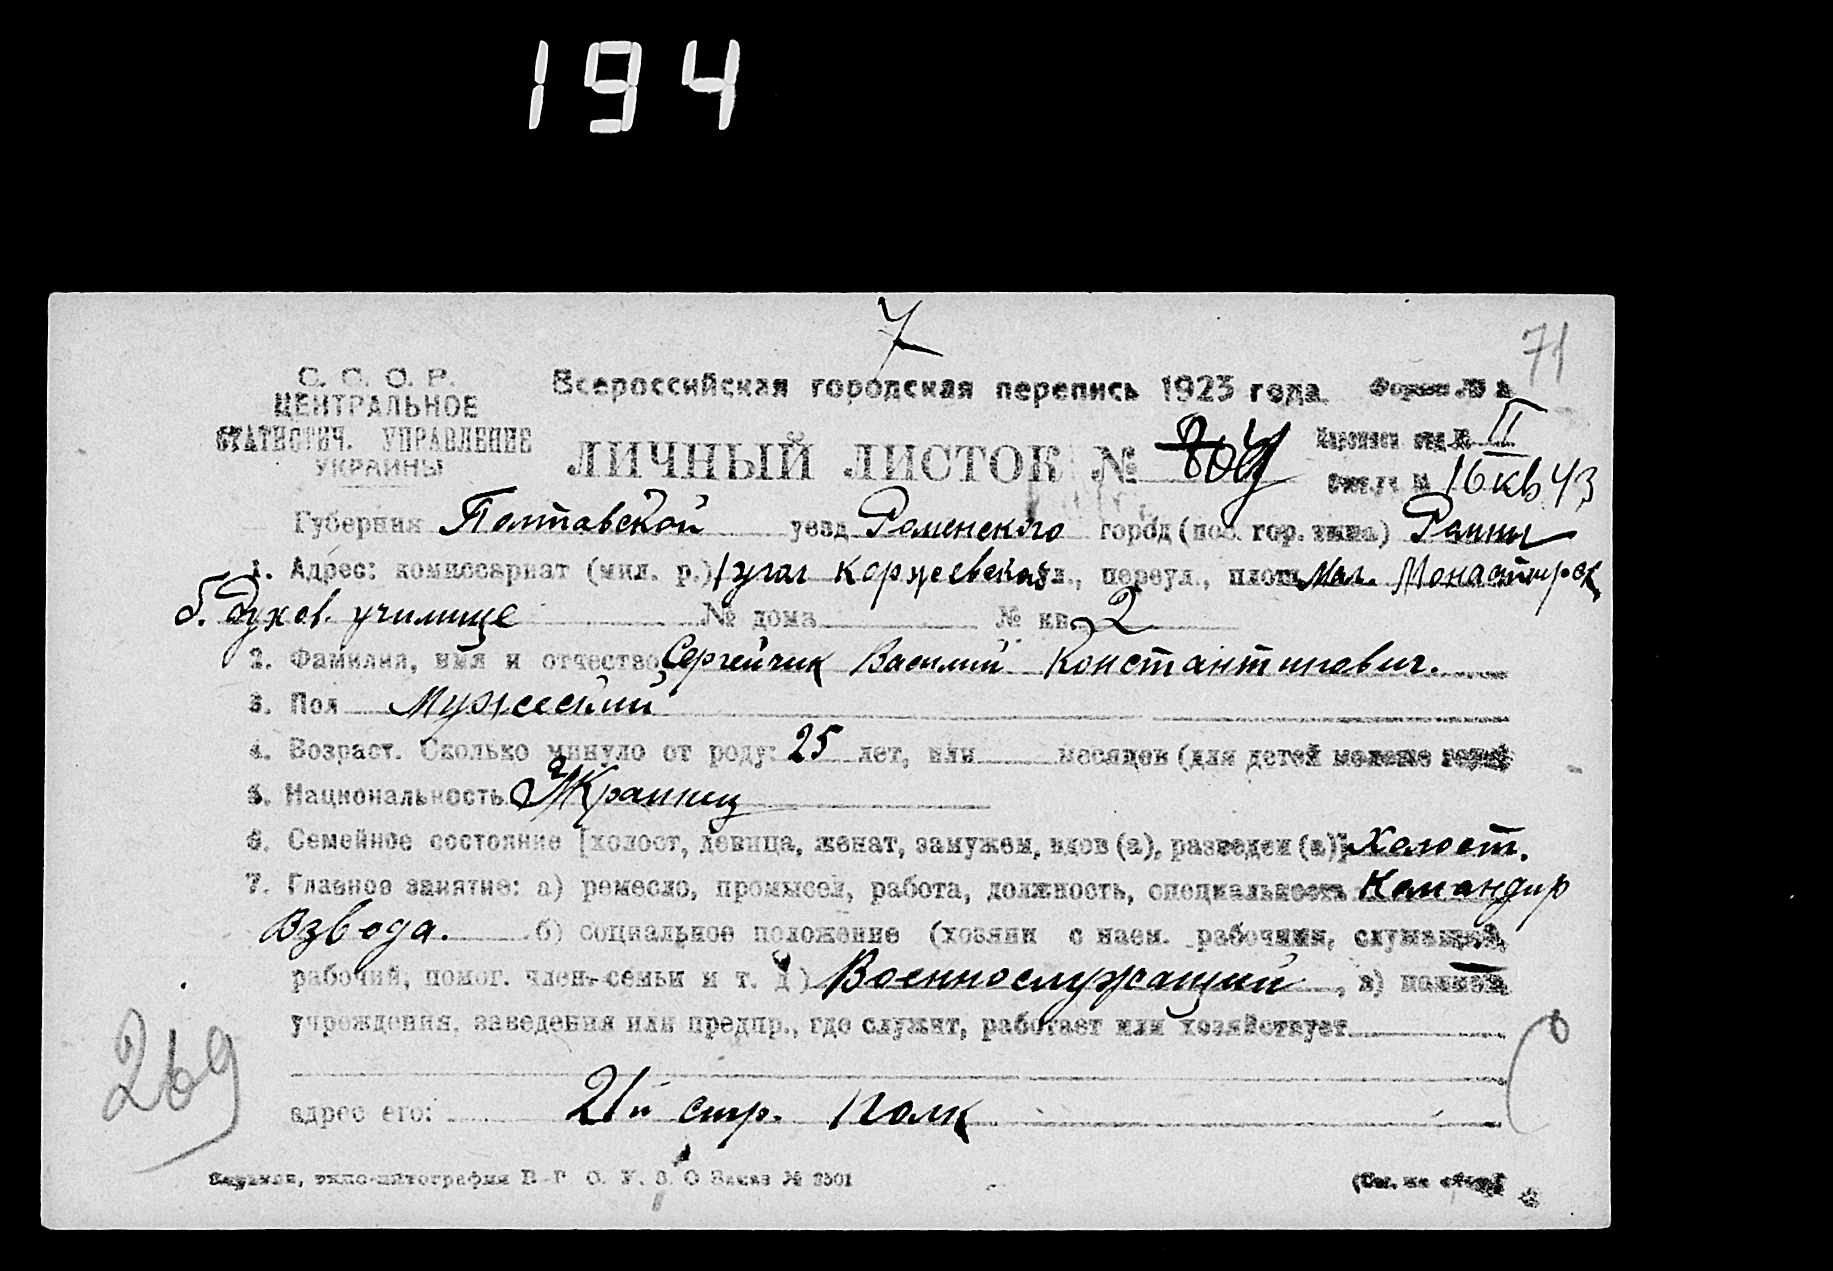 194
7
71
С. С. С. Р.
ЦЕНТРАЛЬНОЕ
СТАТИСТИЧ. УПРАВЛЕНИЕ
УКРАИНЫ
Всероссийская городская перепись 1923 года. Форма №
ЛИЧНЫЙ ЛИСТОК №
II
16 кв 43
Губерния Полтавской уезд Роменского город (пос. гор. типа) Ромны
1. Адрес: комиссариат (мил. р.) угол Коржеевской ул., переул., площ. Мал. Монастырск
б. Духов. училище № дома № кв. 2
2. Фамилия, имя и отчество Сергейчик Василий Константинович.
3. Пол Мужеский
4. Возраст. Сколько минуло от роду: 25 лет, или месяцев (для детей моложе года)
5. Национальность Украинец
6. Семейное состояние [холост, девица, женат, замужем, вдов (а), разведен (а)] Холост.
7. Главное занятие: а) ремесло, промысел, работа, должность, специальность Командир
Взвода. б) социальное положение (хозяин с наем. рабочими, служащий,
рабочий, помог. член семьи и т. д.) Военнослужащий, в) назван.
учреждения, заведения или предпр., где служит, работает или хозяйствует
269
адрес его: 21й стр. полк
Харьков, типо-литография В-Р О. У. З. О Заказ № 2501
(См. на обор.)